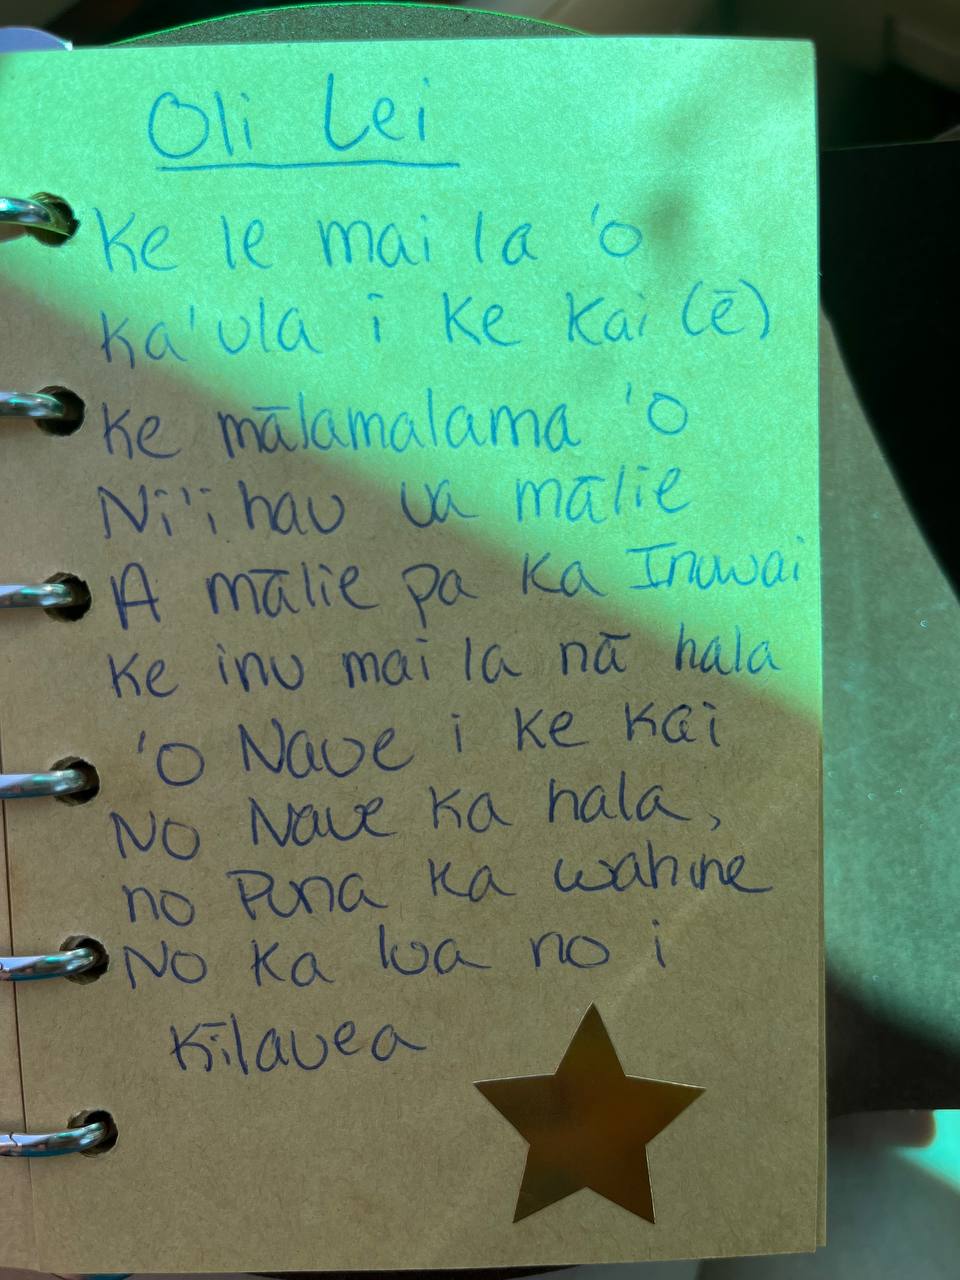 Oli Lei
Ke le mai la 'o
ka'ula i ke kai (ē)
Ke mālamalama 'o
Ni'ihau ua mālie
A mālie pa ka Inuwai
Ke inu mai la nā hala
'O Naue i ke kai
No Naue ka hala,
no Puna ka wahine
No ka lua no i
Kīlauea